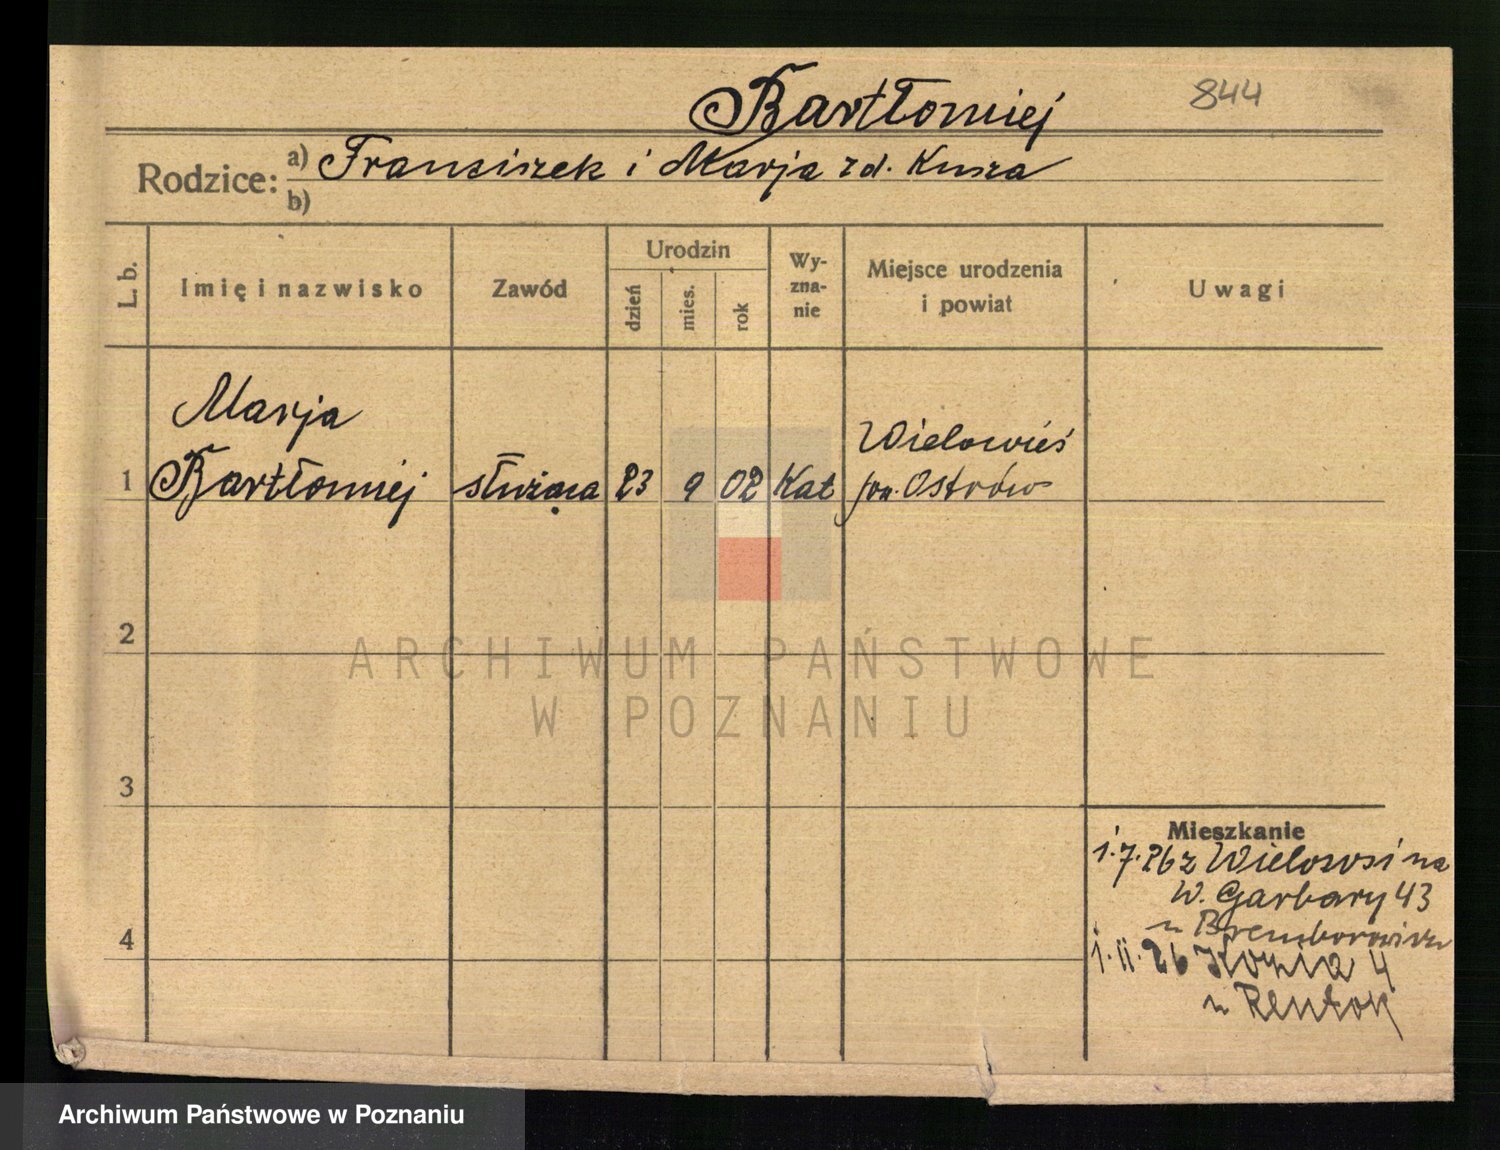 Bartłomiej 844
Rodzice: a) Franciszek i Marja zd. Kusza
b)
L. b. Imię i nazwisko Zawód Urodzin dzień mies. rok Wyznanie Miejsce urodzenia i powiat Uwagi
Marja Wielowieś
1 Bartłomiej służąca 23 9 02 Kat pow. Ostrów
2
ARCHIWUM PAŃSTWOWE
W POZNANIU
3
Mieszkanie
1.7.26 z Wielowsi na
W. Garbary 43
4
1.11.26 Kozia 4
Archiwum Państwowe w Poznaniu